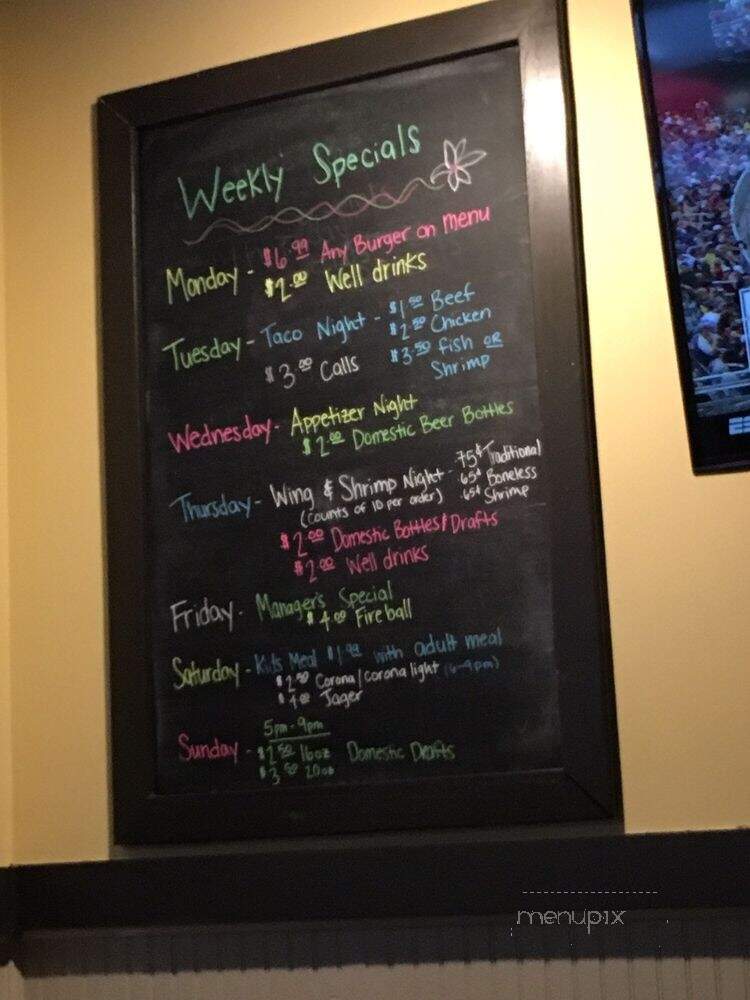 Weekly Specials
Monday - $6.99 Any Burger on menu
$2.00 Well drinks
Tuesday - Taco Night - $1.50 Beef
$2.50 Chicken
$3.50 fish OR
Shrimp
$3.00 Calls
Wednesday - Appetizer Night
$2.00 Domestic Beer Bottles
Thursday - Wing & Shrimp Night - .75¢ Traditional
(counts of 10 per order) .65¢ Boneless
.65¢ Shrimp
$2.00 Domestic Bottles/Drafts
$2.00 Well drinks
Friday - Manager's Special
$4.00 Fireball
Saturday - Kids Meal $1.99 with adult meal
$2.50 Corona/corona light
$4.00 Jager
Sunday - 5pm-9pm
$2.50 16oz Domestic Drafts
$3.50 20oz
menupix